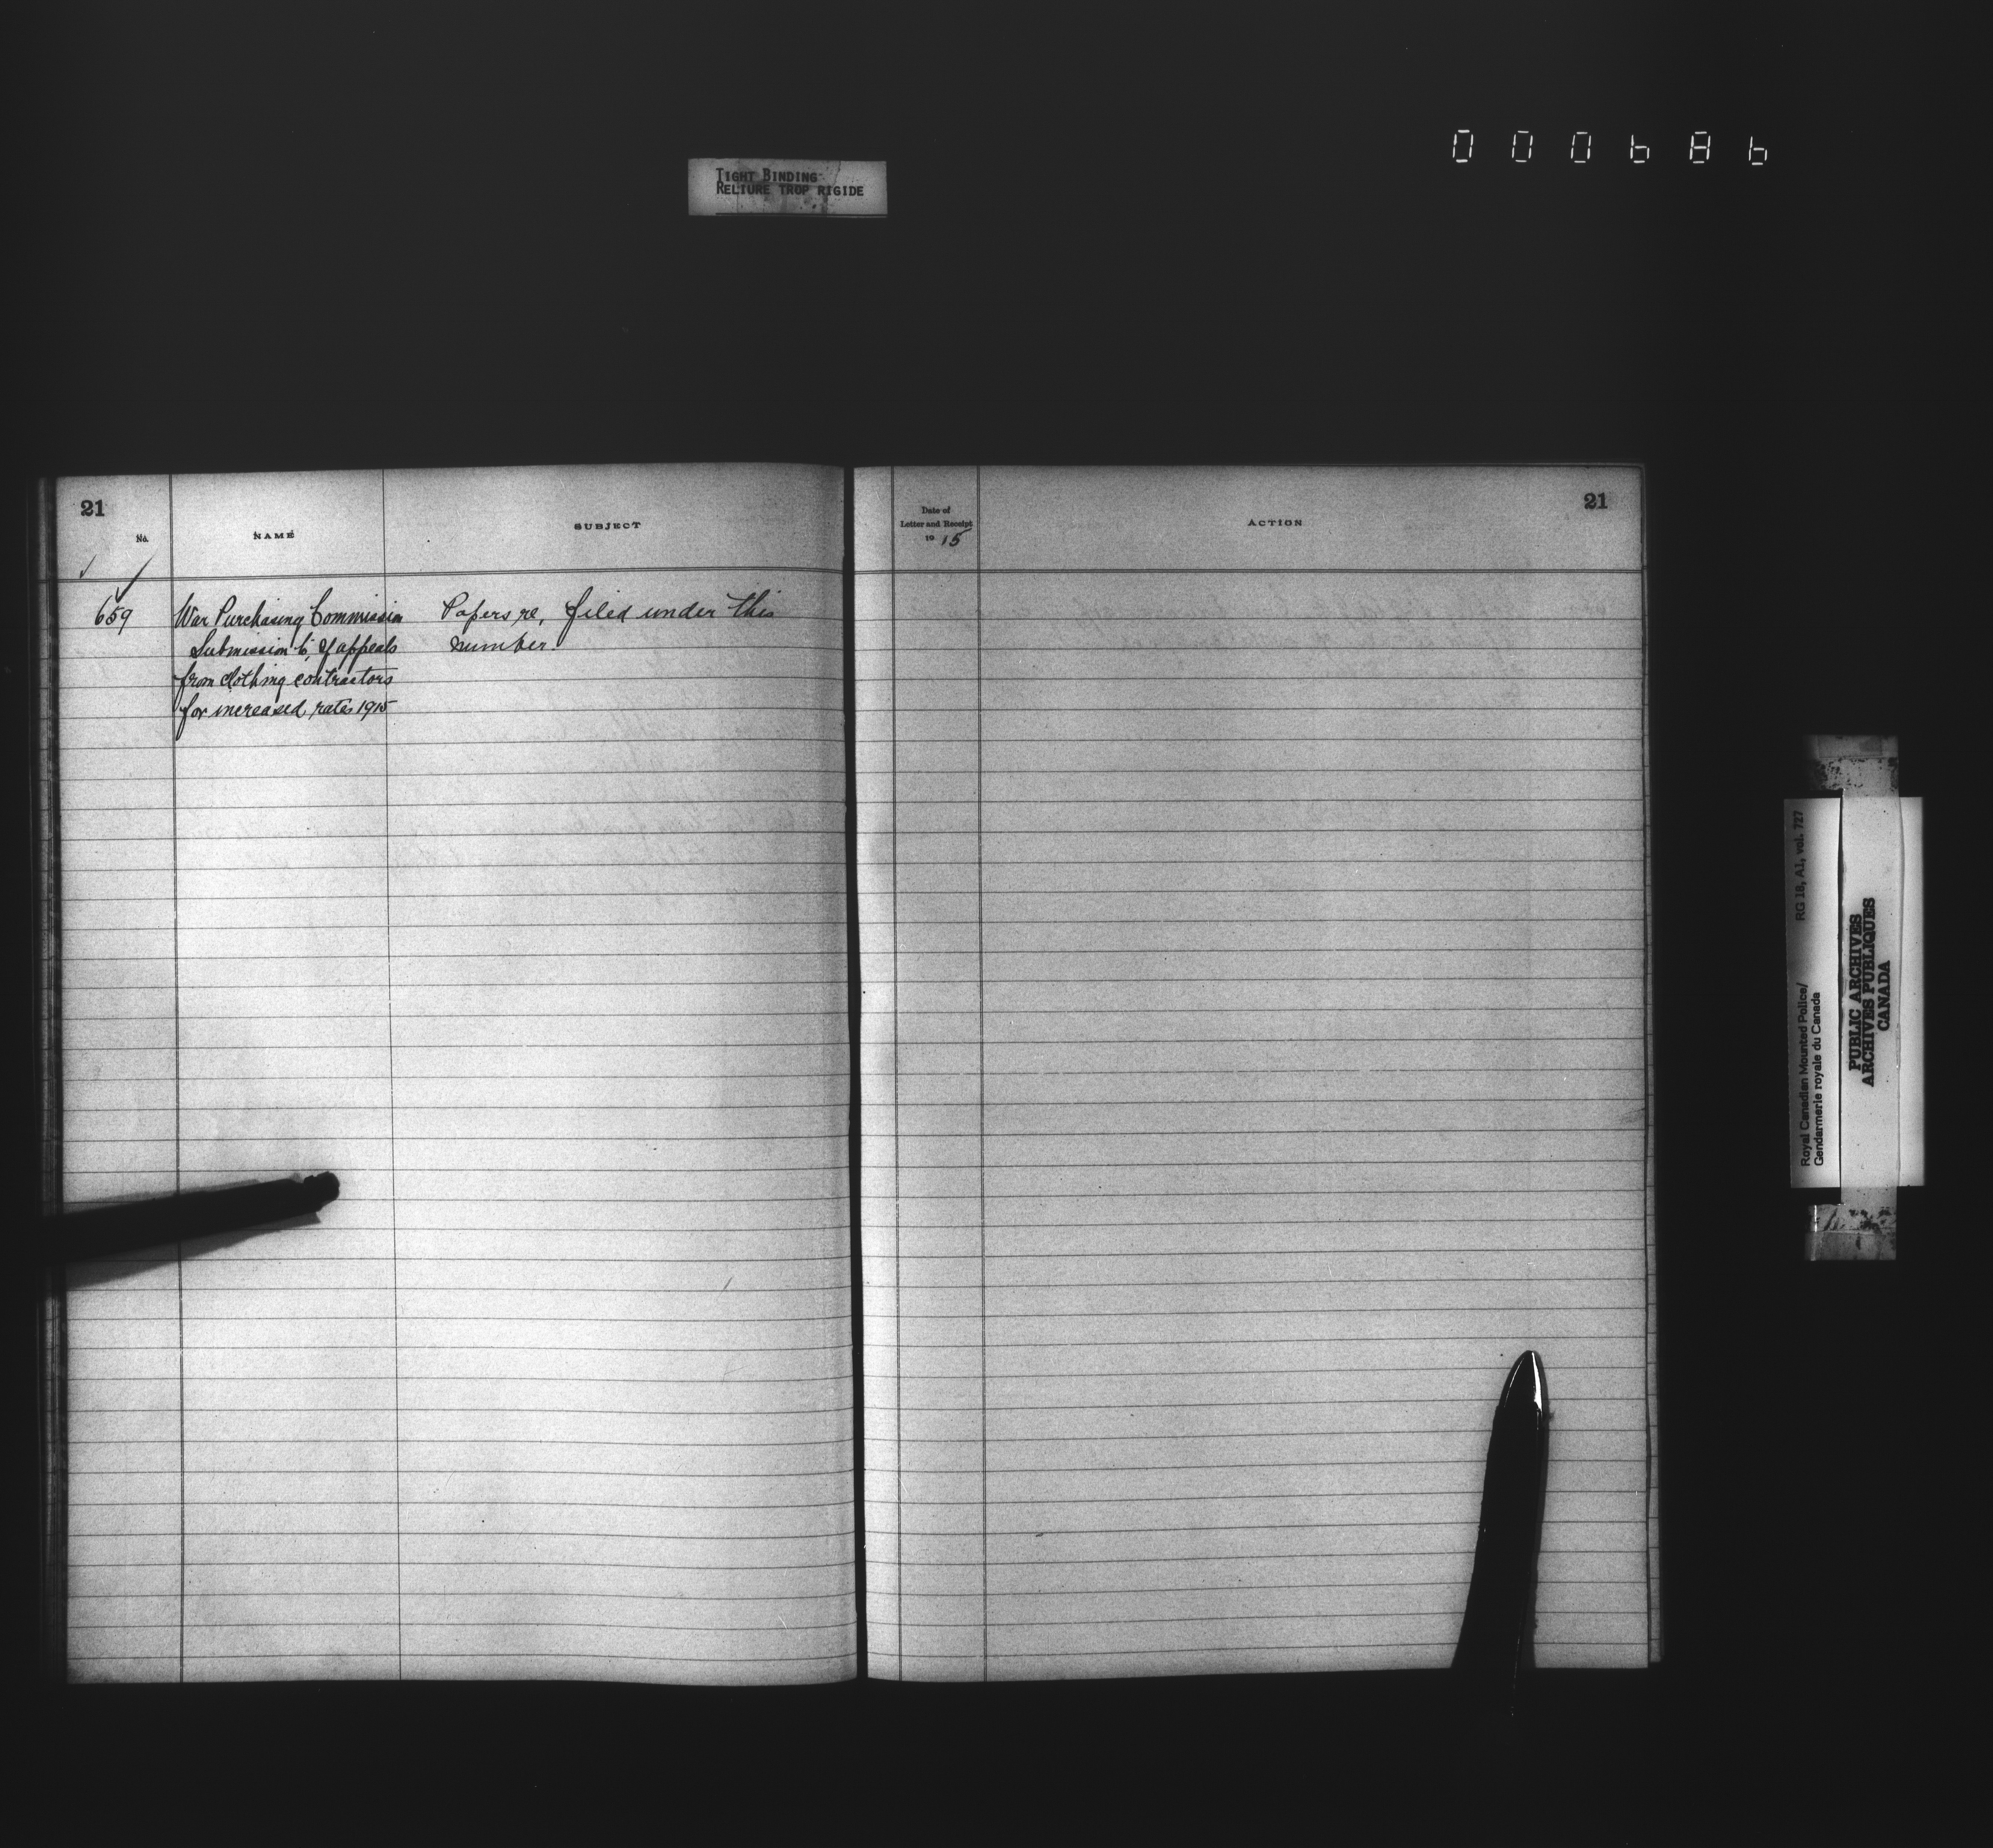 000686
TIGHT BINDING
RELIURE TROP RIGIDE
21
No.
NAME
SUBJECT
659
War Purchasing Commission
Submission to, of appeals
from clothing contractors
for increased rates 1915
Papers re, filed under this
number.
Date of
Letter and Receipt
1915
ACTION
21
Royal Canadian Mounted Police/
Gendarmerie royale du Canada
RG 18, A1, vol. 727
PUBLIC ARCHIVES
ARCHIVES PUBLIQUES
CANADA